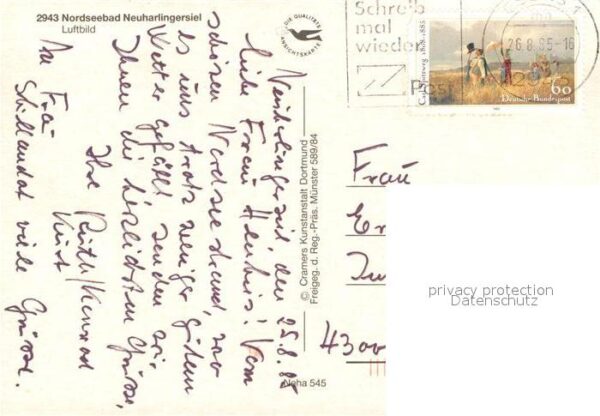 2943 Nordseebad Neuharlingersiel
Luftbild
DIE QUALITÄTS
ANSICHTSKARTE
Schreib
mal
wieder
Post
26.8.85-16
Carl Spitzweg 1808-1885
60
Deutsche Bundespost
Neuharlingersiel den 25.8.85
Liebe Frau Vom
schönen Nordseestrand, wo
es uns trotz weniger gutem
Wetter gefällt senden wir
Ihnen die herzlichsten Grüsse,
Ihre Ruth/Konrad
Kurt
An Frau
viele Grüsse.
© Cramers Kunstanstalt Dortmund
Freigeg. d. Reg.-Präs. Münster 589/84
Neha 545
Frau
4300
privacy protection
Datenschutz